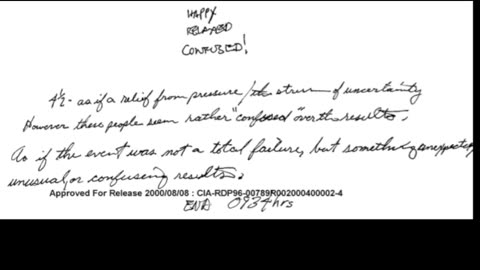 HAPPY
RELAXED
CONFUSED!
4½ - as if a relief from pressure/the strain of uncertainty
However these people seem rather "confused" over the results.
As if the event was not a total failure, but something unexpected,
unusual or confusing results.
Approved For Release 2000/08/08 : CIA-RDP96-00789R002000400002-4
END 0934 hrs